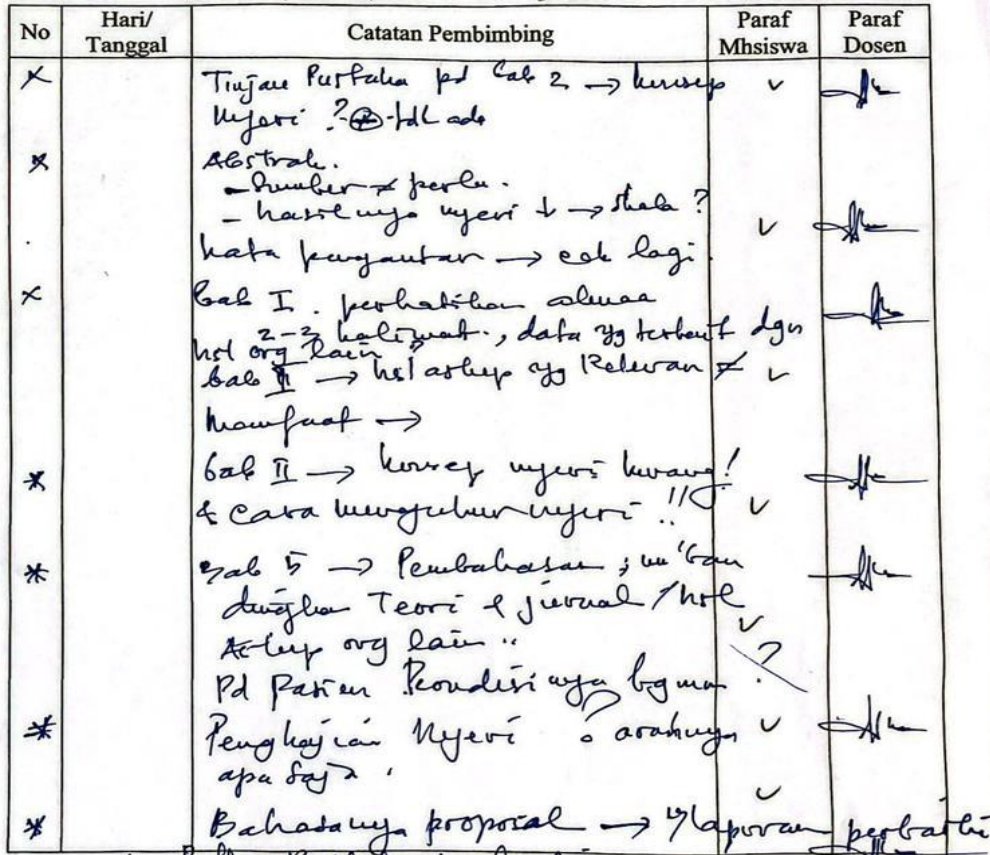 No Hari/ Tanggal Catatan Pembimbing Paraf Mhsiswa Paraf Dosen
Tinjau Pustaka pd bab 2 → konsep
Nyeri ? tdk ada
Abstrak.
- Sumber ≠ perlu.
- hasilnya nyeri ↓ → skala ?
kata pengantar → cek lagi.
bab I. perhatikan alenea
2-3 kalimat., data yg terkait dgn
hsl org lain
bab II → hsl askep yg Relevan ≠
Manfaat →
bab II → konsep nyeri kurang!
& cara mengukur nyeri !!
bab 5 → Pembahasan ; m'ban
dingkan Teori & jurnal / hsl
Askep org lain ..
Pd Pasien Kondisinya bgmn ?
Pengkajian Nyeri ? arahnya
apa saja.
Bahasanya proposal → laporan perbaiki